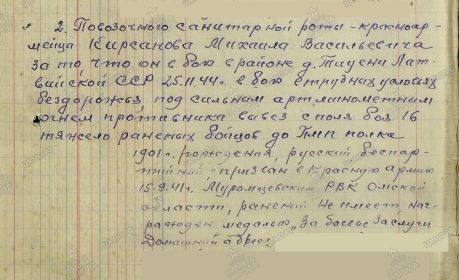 2. Повозочного санитарной роты - красноар-
мейца Кирсанова Михаила Васильевича
за то что он в бою в районе д. Тауени Лат-
вийской ССР 25.11.44 г. в бою в трудных условиях
бездорожья, под сильным арт. минометным
огнем противника вывез с поля боя 16
тяжело раненых бойцов до ПМП полка
1901 г. рождения, русский, беспар-
тийный призван в Красную армию
15.9.41 г. Муромцевским РВК Омской
области, ранений не имеет, наг-
ражден медалью "За боевые заслуги
Домашний адрес: